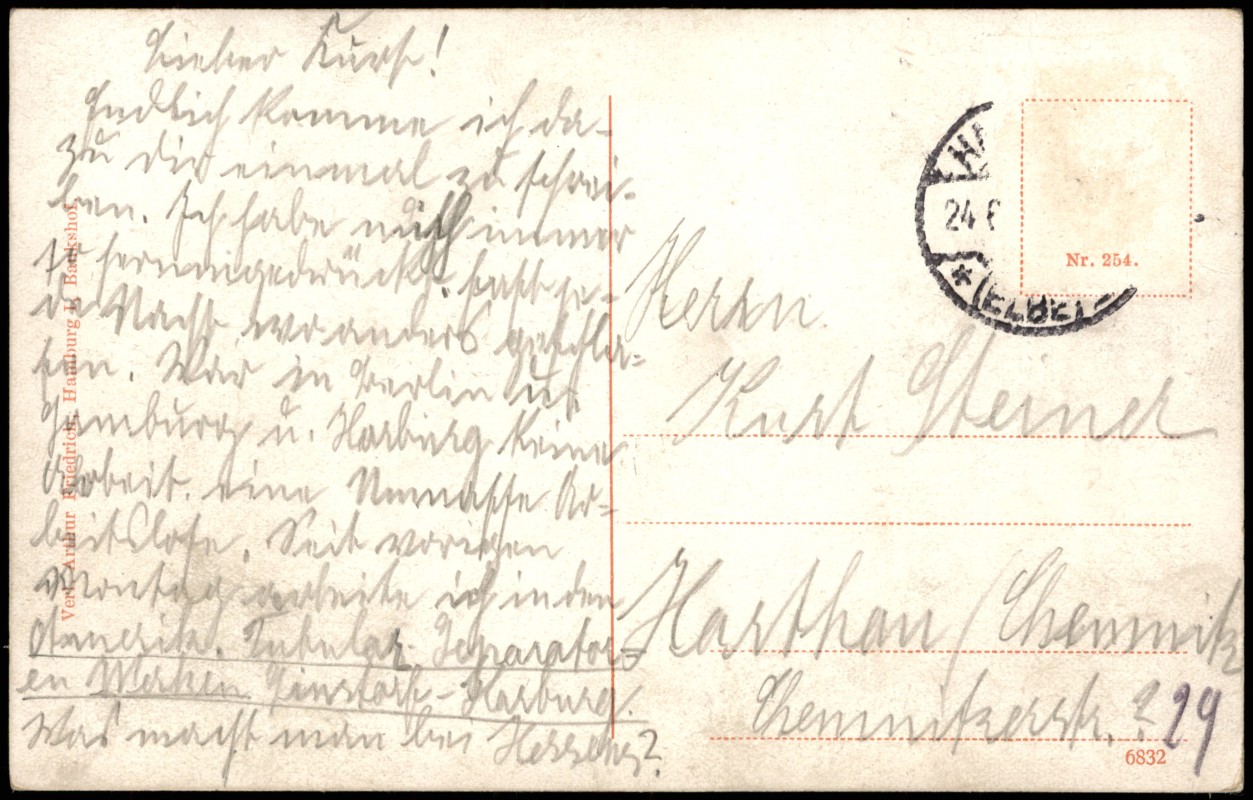 Lieber Kurt!
Endlich komme ich da-
zu dir einmal zu schrei-
ben. Ich habe mich immer
so herumgedrückt. fast je-
de Nacht wo anders geschla-
fen. War in Berlin
Hamburg u. Harburg keine
Arbeit. eine Unmasse Ar-
beitslose. Seit vorigen
Montag arbeite ich in den
Amerik. Tubular Separator-
en Werken Sinstorf-Harburg.
Was macht man bei
Verl. Arthur Friedrich, Hamburg
24 6
(ELBE)
Nr. 254.
Herrn
Kurt Steiner
Harthau / Chemnitz
Chemnitzerstr. 29
6832